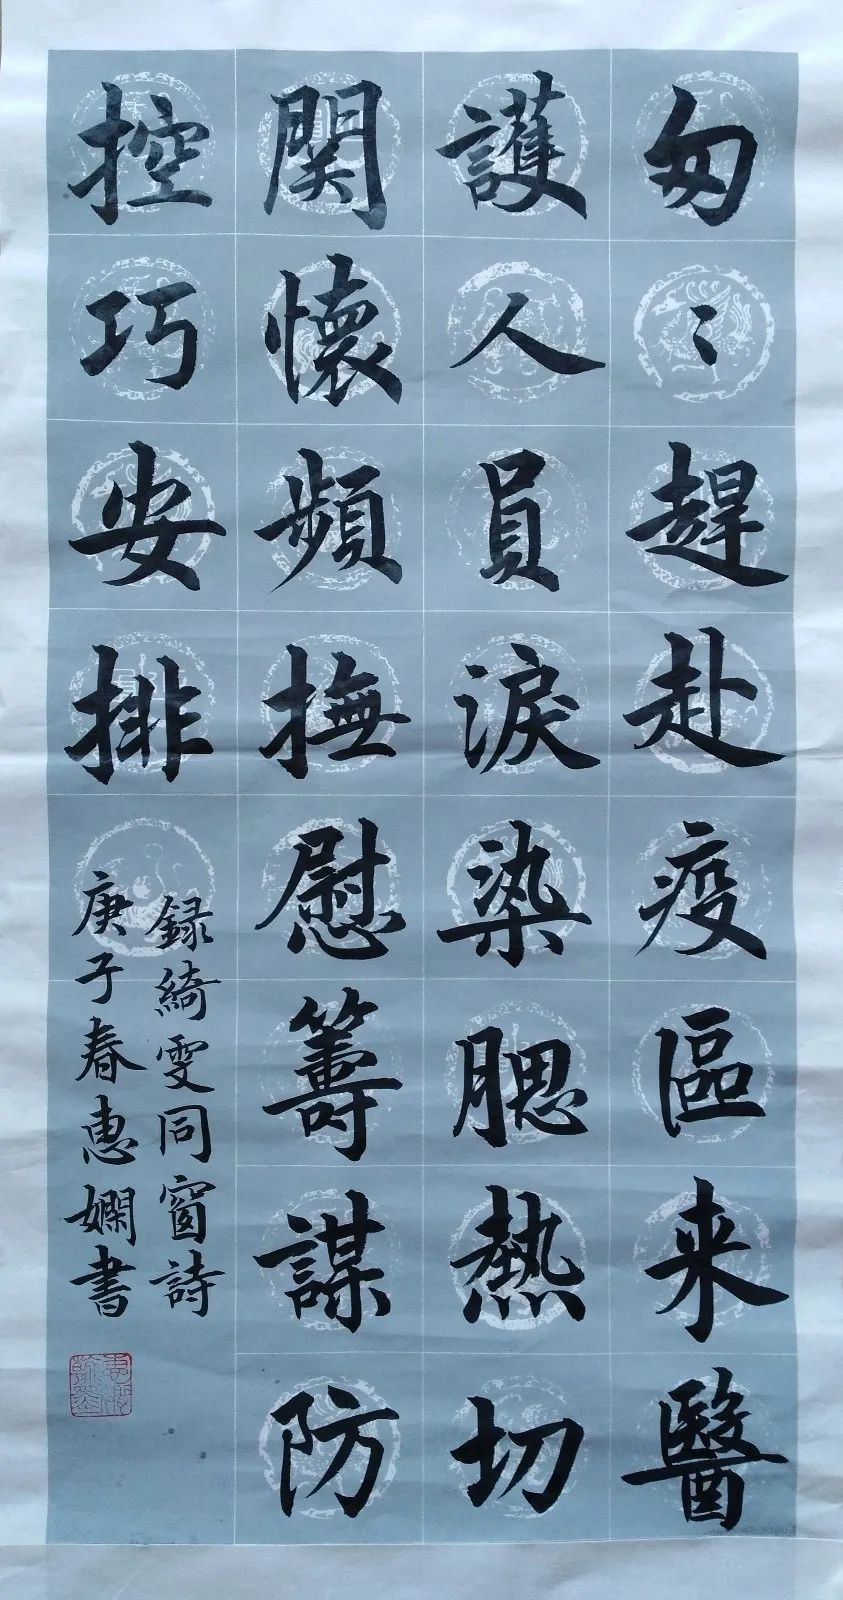 匆〻趕赴疫區来醫
護人員淚染腮熱切
関懷頻撫慰籌謀防
控巧安排
録綺雯同窗詩
庚子春惠嫻書